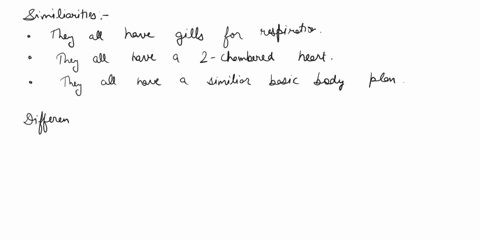 Similiarities :-
• They all have gills for respiratio.
• They all have a 2-chambered heart.
• They all have a similiar basic body plan.
Differen